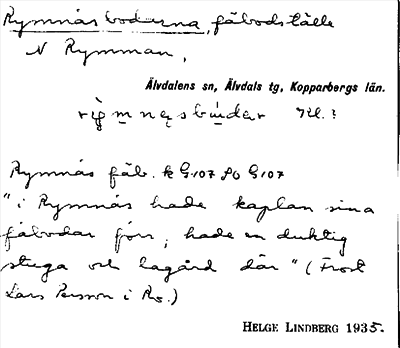 Rymnäsbodarna, fäbodställe
N Rymman,
Älvdalens sn, Älvdals tg, Kopparbergs län.
Rymnäs fäb. k G.107 på G.107
"i Rymnäs hade kaplan sina
fäbodar förr, hade en duktig
stuga och lagård där" (Frost
Lars Persson i Ro.)
HELGE LINDBERG 1935.